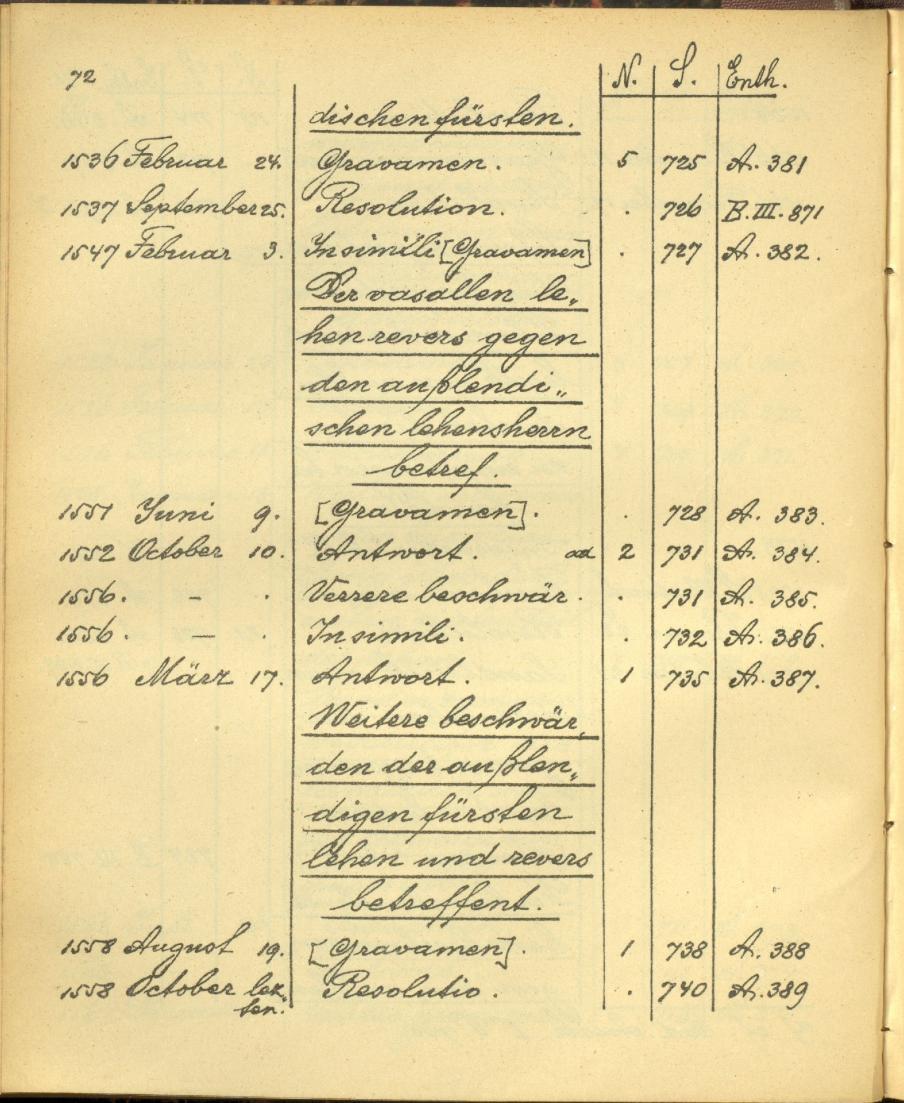 72 N. S. Enth.
dischen fürsten.
1536 Februar 24. Gravamen. 5 725 A. 381
1537 September 25. Resolution. . 726 B. III. 871
1547 Februar 3. In simili [Gravamen] . 727 A. 382.
Der vasallen le„
hen revers gegen
den außlendi„
schen lehensherrn
betref.
1551 Juni 9. [Gravamen]. . 728 A. 383.
1552 October 10. Antwort. ad 2 731 A. 384.
1556. – . Verrere beschwär. . 731 A. 385.
1556. – . In simili. . 732 A. 386.
1556 März 17. Antwort. 1 735 A. 387.
Weitere beschwär„
den der außlen„
digen fürsten
lehen und revers
betreffent.
1558 August 19. [Gravamen]. 1 738 A. 388
1558 October lez„ Resolutio. . 740 A. 389
ten.